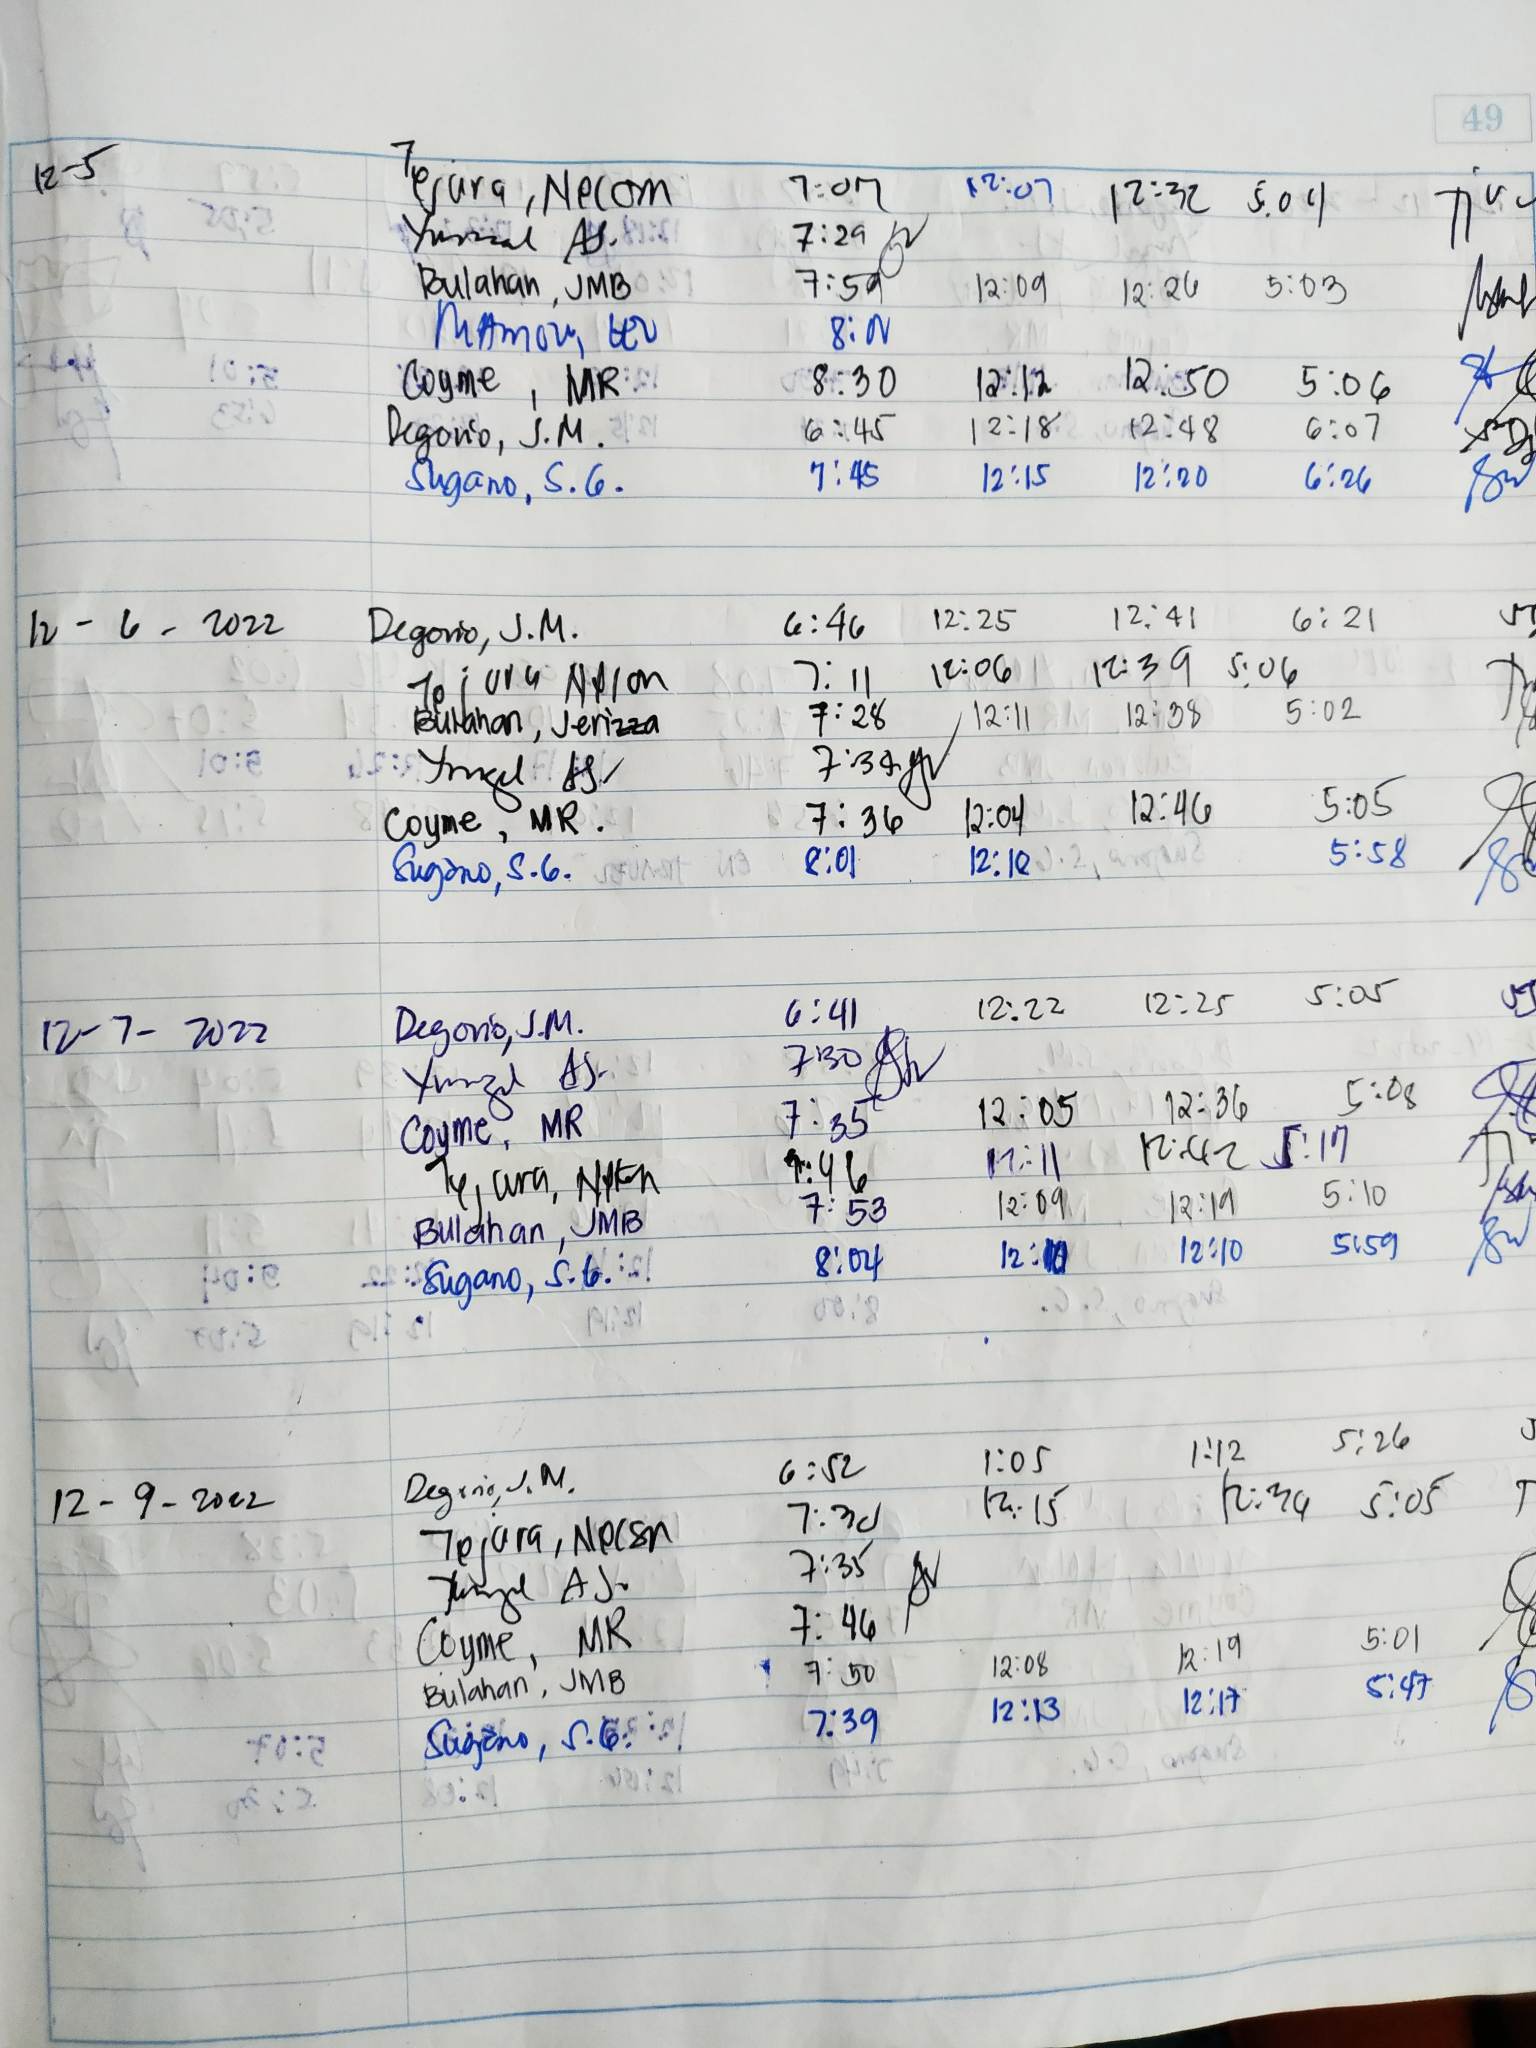 49
12-5 Tejura, Nelson 7:07 12:07 12:32 5:04
AS. 7:29
Bulahan, JMB 7:59 12:09 12:26 5:03
8:01
Coyme, MR 8:30 12:12 12:50 5:06
Degorio, J.M. 6:45 12:18 12:48 6:07
Sugano, S.G. 7:45 12:15 12:20 6:26
12-6-2022 Degorio, J.M. 6:46 12:25 12:41 6:21
Tejura Nelson 7:11 12:06 12:39 5:06
Bulahan, Jerizza 7:28 12:11 12:38 5:02
AS.
Coyme, MR. 7:36 12:04 12:46 5:05
Sugano, S.G. 8:01 5:58
12-7-2022 Degorio, J.M. 6:41 12:22 12:25 5:05
AS. 7:30
Coyme, MR 7:35 12:05 12:36 5:08
Tejura, Nelson 7:46 12:11 12:42 5:17
Bulahan, JMB 7:53 12:09 12:19 5:10
Sugano, S.G. 8:04 12:10 5:59
12-9-2022 Degorio, J.M. 6:52 1:05 1:12 5:26
Tejura, Nelson 12:15 12:34 5:05
AS. 7:35
Coyme, MR 7:46
Bulahan, JMB 7:50 12:08 12:19 5:01
Sugano, S.G. 7:39 12:13 12:17 5:47